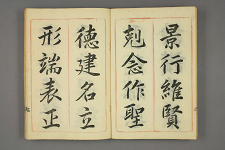 景行維賢
剋念作聖
德建名立
形端表正